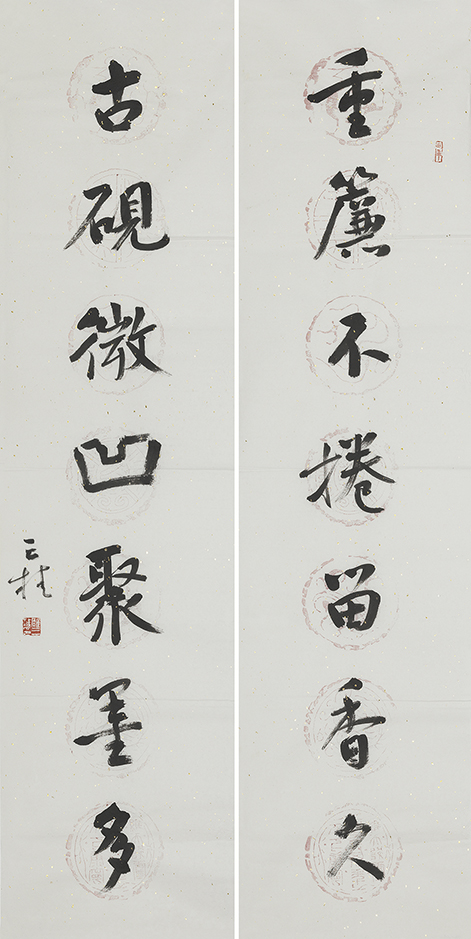 重簾不捲留香久
古硯微凹聚墨多